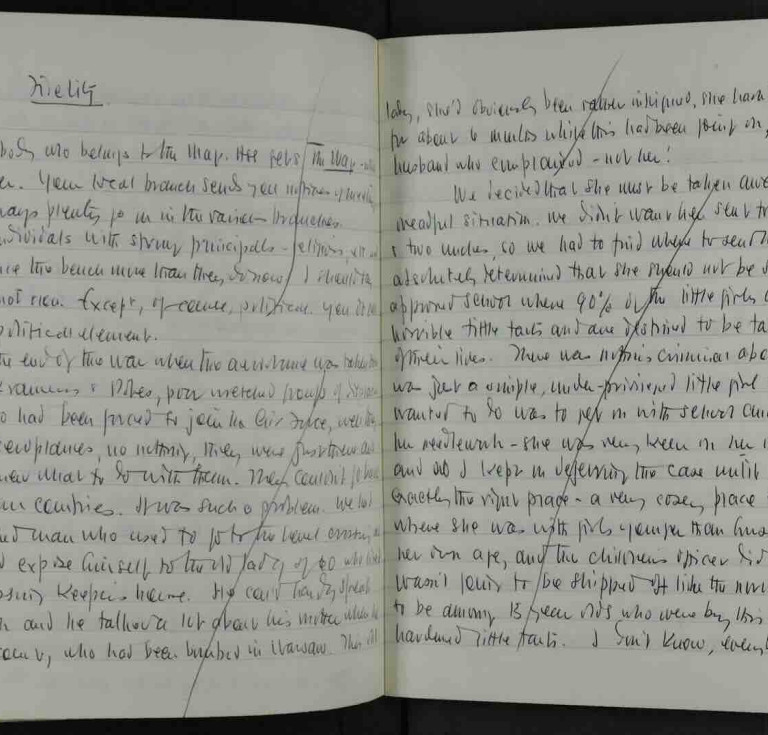 Fidelity
body who belongs to the Mag. Ass gets The Mag
er. Your local branch sends you notices of
ways plenty go on in the various branches.
dividuals with strong principals - religious,
nce the bench more than they do now I should
not even. Except, of course, political. You
political element.
the end of the war when the aerodrome was
Ukranians & Poles, poor wretched group of
o had been forced to join the Air Force, well
aeroplanes, no nothing, they were just
knew what to do with them. They couldn't go
own countries. It was such a problem. We had
ed man who used to go to the level crossing
d expose himself to the old lady of 60 who
ossing keeper's house. He could hardly speak
h and he talked a lot about his mother when he
, who had been bombed in Warsaw. This
lady, she'd obviously been rather intrigued, she
for about 6 months while this had been going on,
husband who complained - not her!
We decided that she must be taken
dreadful situation. We didn't want her sent
& two uncles, so we had to find where to send
absolutely determined that she should not be
approved school where 90% of the little girls
horrible little tarts and are destined to be
of their lives. There was nothing criminal
was just a simple, under-privileged little girl
wanted to do was to get on with school
her needlework - she was very keen on her
and I kept on deferring the case until
exactly the right place - a very cosey place
where she was with girls younger than
her own age, and the childrens officer did
wasn't going to be shipped off like the
to be among 13 year olds who were by this
hardened little tarts. I don't know, every